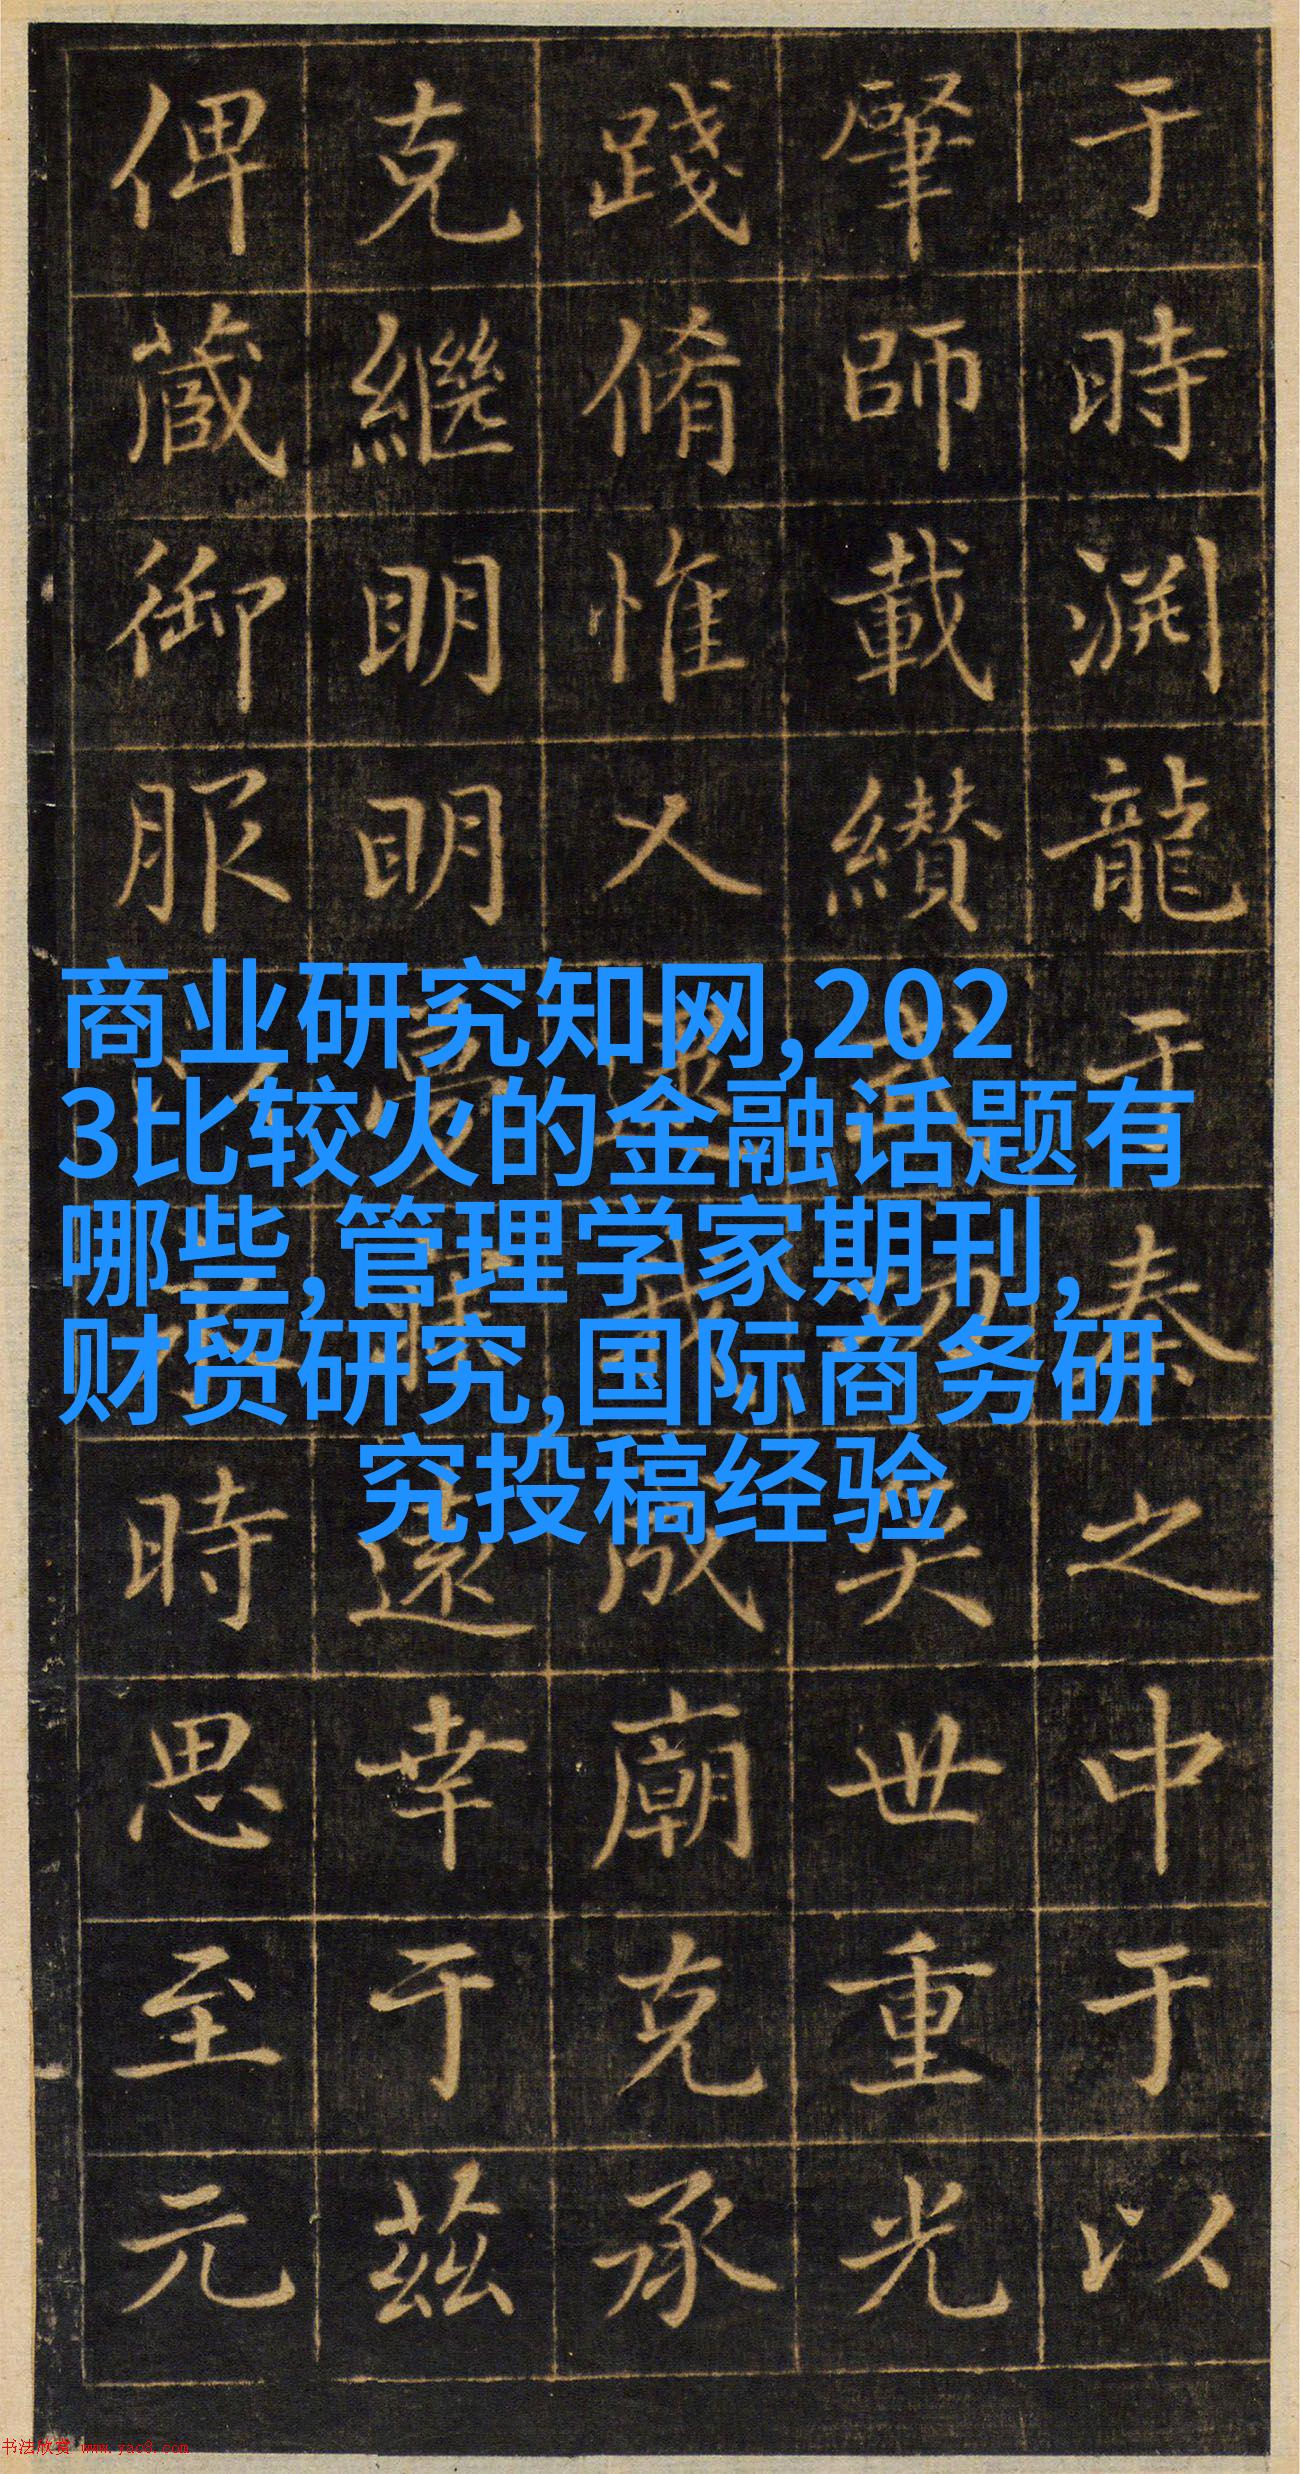 于時渊龍于之中于以
肇師載纘武功奕世重光
踐脩惟乂逮我成廟克承
克繼明明遠幸于茲
俾蕆御服以時思至元
商业研究知网,202
3比较火的金融话题有
哪些,管理学家期刊,
财贸研究,国际商务研
究投稿经验
书法欣赏 www.yac8.com